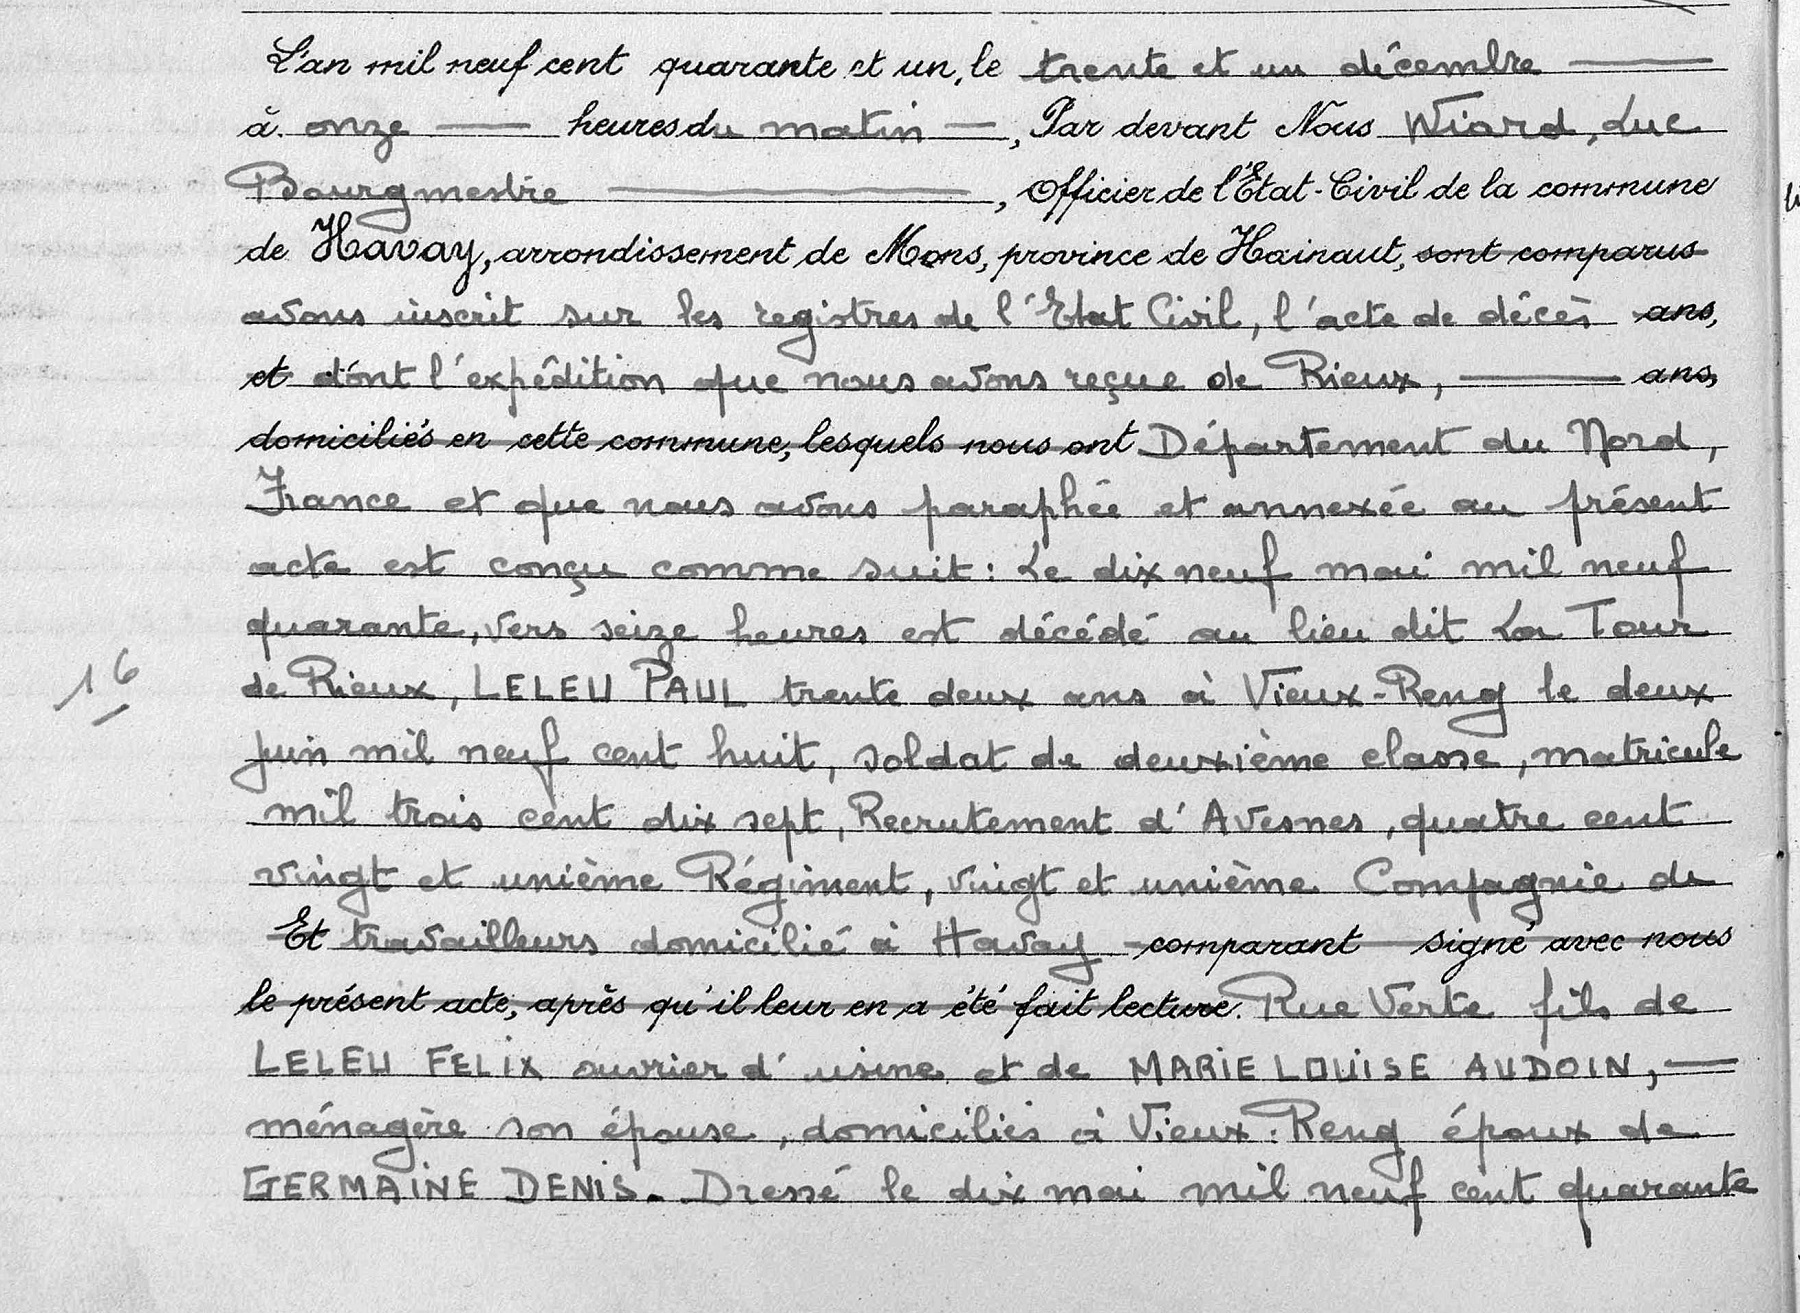 L'an mil neuf cent quarante et un, le trente et un décembre
à onze heures du matin, Par devant Nous Wiard, Luc
Bourgmestre, Officier de l'État-Civil de la commune
de Havay, arrondissement de Mons, province de Hainaut, sont comparus
avons inscrit sur les registres de l'Etat Civil, l'acte de décès ans,
et dont l'expédition que nous avons reçue de Rieux, ans,
domiciliés en cette commune, lesquels nous ont Département du Nord,
France et que nous avons paraphée et annexée au présent
acte est conçu comme suit : Le dix neuf mai mil neuf
quarante, vers seize heures est décédé au lieu dit La Tour
16 de Rieux, LELEU PAUL trente deux ans à Vieux-Reng le deux
juin mil neuf cent huit, soldat de deuxième classe, matricule
mil trois cent dix sept, Recrutement d'Avesnes, quatre cent
vingt et unième Régiment, vingt et unième Compagnie de
Et travailleurs domicilié à Havay comparant signé avec nous
le présent acte, après qu'il leur en a été fait lecture. Rue Verte fils de
LELEU FELIX ouvrier d'usine et de MARIE LOUISE AUDOIN,
ménagère son épouse, domiciliés à Vieux-Reng époux de
GERMAINE DENIS. Dressé le dix mai mil neuf cent quarante